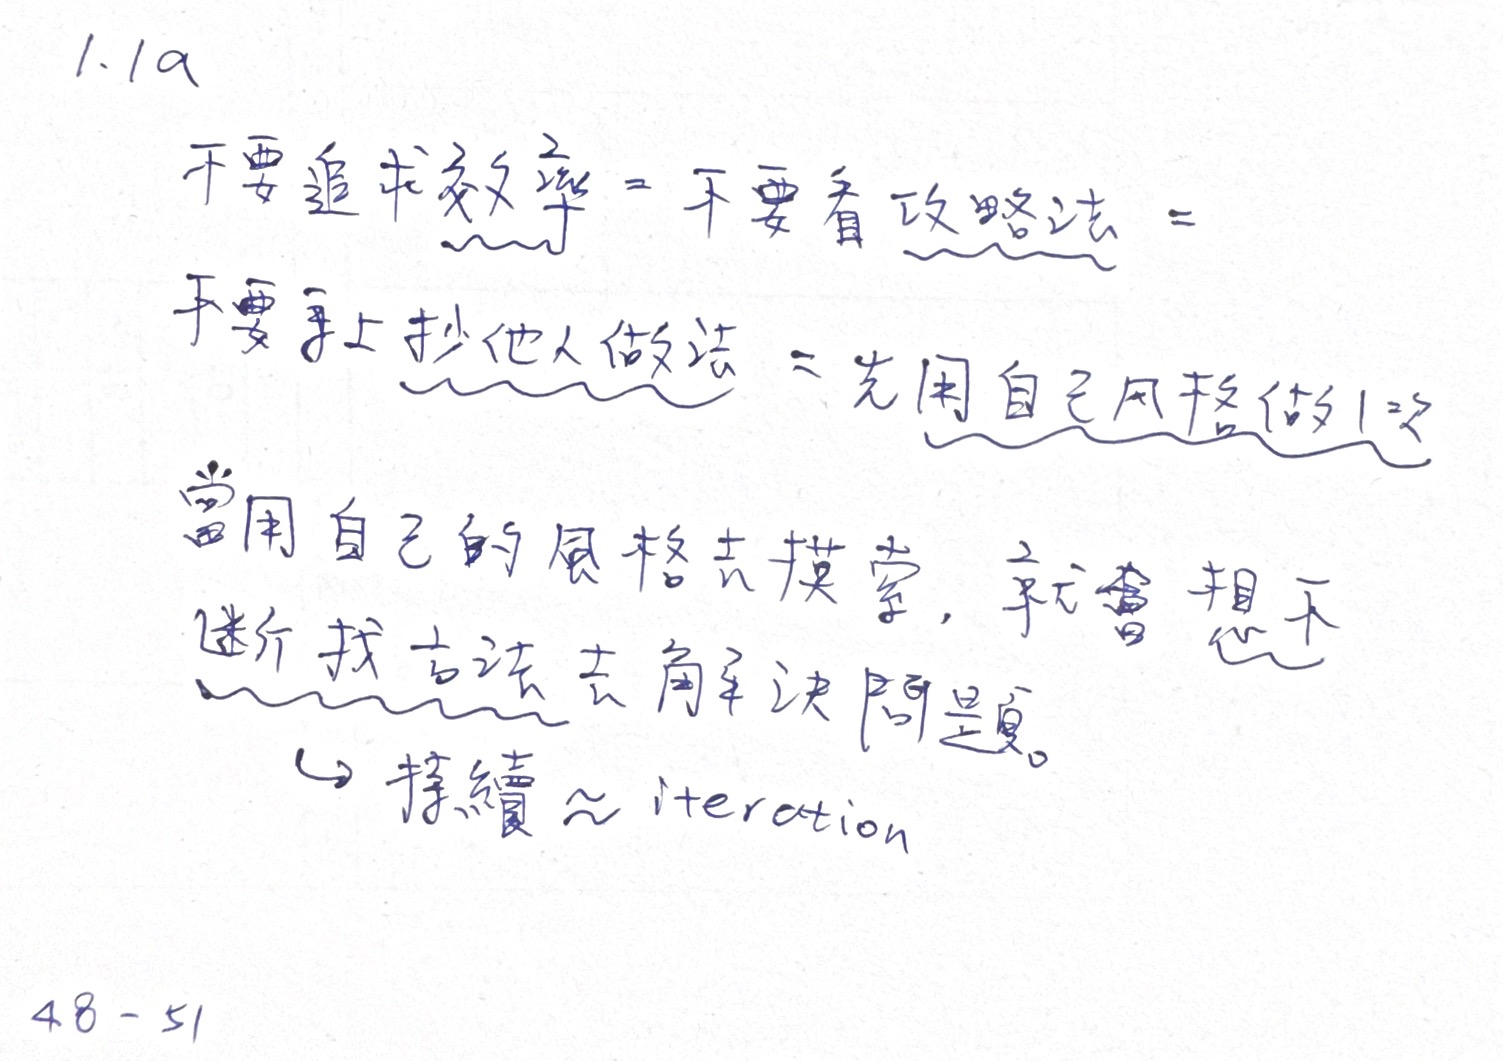 1.1a
不要追求效率 = 不要看攻略法 =
不要馬上抄他人做法 = 先用自己风格做1次
當用自己的風格去摸索,就會想不
斷找方法去解決問題。
↳ 持續 ≈ iteration
48-51